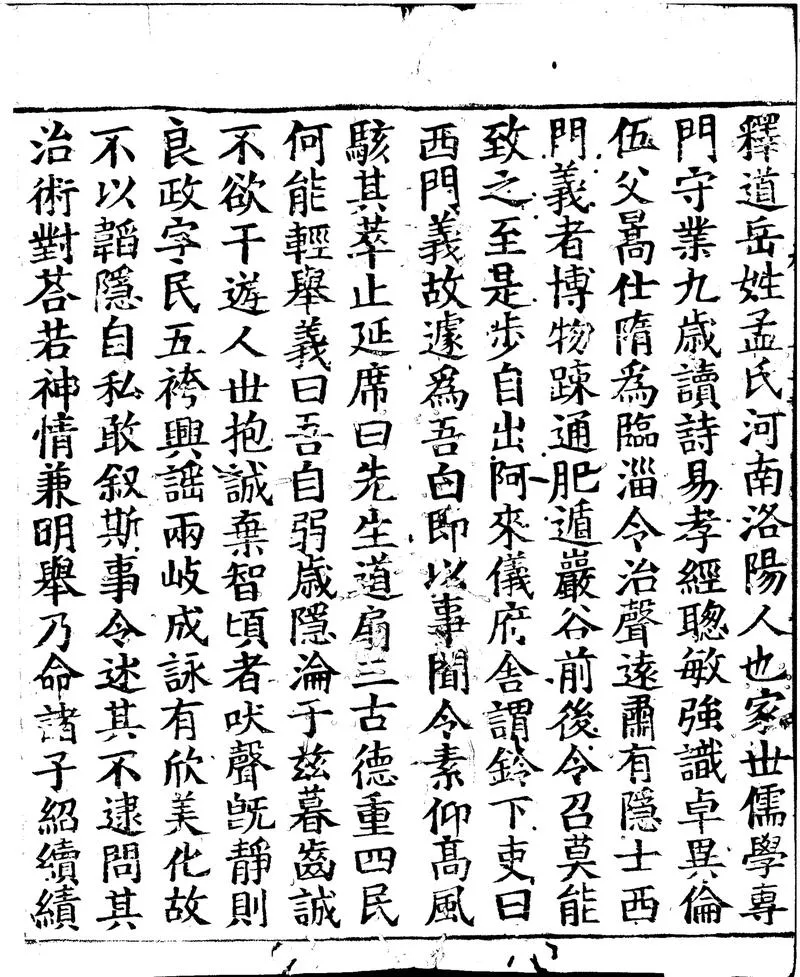 釋道岳姓孟氏河南洛陽人也家世儒學專
門守業九歲讀詩易孝經聰敏強識卓異倫
伍父暠仕隋為臨淄令治聲遠肅有隱士西
門義者博物踈通肥遁巖谷前後令召莫能
致之至是步自出阿來儀府舍謂鈴下吏曰
西門義故遽為吾白即以事聞令素仰高風
駭其萃止延席曰先生道扇三古德重四民
何能輕舉義曰吾自弱歲隱淪于茲暮齒誠
不欲干遊人世抱誠棄智頃者吠聲旣靜則
良政字民五袴興謡兩岐成詠有欣美化故
不以韜隱自私敢叙斯事令述其不逮問其
治術對荅若神情兼明舉乃命諸子紹續績